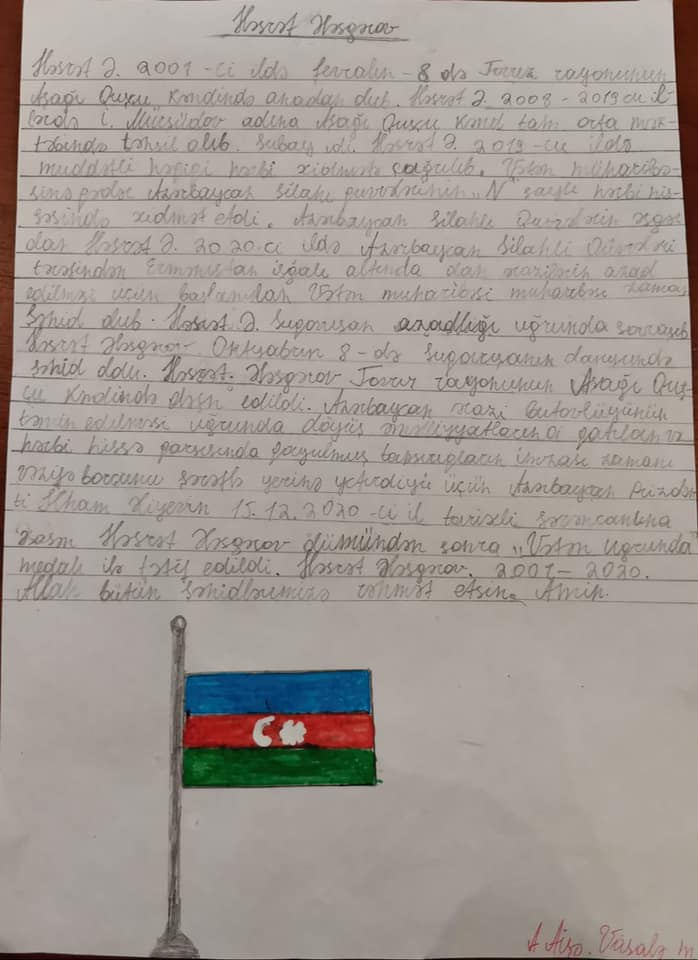 Həsrət Ələsgərov
Həsrət Ə. 2001-ci ildə fevralın-8 də Tovuz rayonunun
Aşağı Quşçu kəndində anadan olub. Həsrət Ə. 2008-2019 cu il-
lərdə İ. Mürsüdov adına Aşağı Quşçu kənd tam orta mək-
təbində təhsil alıb. Subay idi. Həsrət Ə. 2019-cu ildə
müddətli həqiqi hərbi xidmətə çağrılıb. Vətən müharibə-
sinə qədər Azərbaycan Silahlı qüvvələrinin "N" saylı hərbi his-
səsində xidmət etdi. Azərbaycan Silahlı Qüvvələrin əsgə
dan Həsrət Ə. 2020-ci ildə Azərbaycan Silahlı Qüvvələri
tərəfindən Ermənistan işğalı altında olan ərazilərin azad
edilməsi üçün başlanılan Vətən müharibəsi müharibəsi zaman
Şəhid olub. Həsrət Ə. Suqovuşan azadlığı uğrunda savaşıb
Həsrət Ələsgərov Oktyabrın 8-də Suqovuşanın danışında
şəhid oldu. Həsrət. Ələsgərov Tovuz rayonunun Aşağı Quş-
çu kəndində dəfn edildi. Azərbaycan ərazi bütövlüyünün
təmin edilməsi uğrunda döyüş əməliyyatlarına qatılan və
hərbi hissə qarşısında qoyulmuş tapşırıqların icrası zamanı
vəzifə borcunu şərəflə yerinə yetirdiyi üçün Azərbaycan Prizden-
ti İlham Əliyevin 15.12.2020-ci il tarixli sərəncamına
əsasən Həsrət Ələsgərov ölümündən sonra "Vətən uğrunda"
medalı ilə təltif edildi. Həsrət Ələsgərov. 2001-2020.
Allah bütün Şəhidlərimizə rəhmət etsin. Amin.